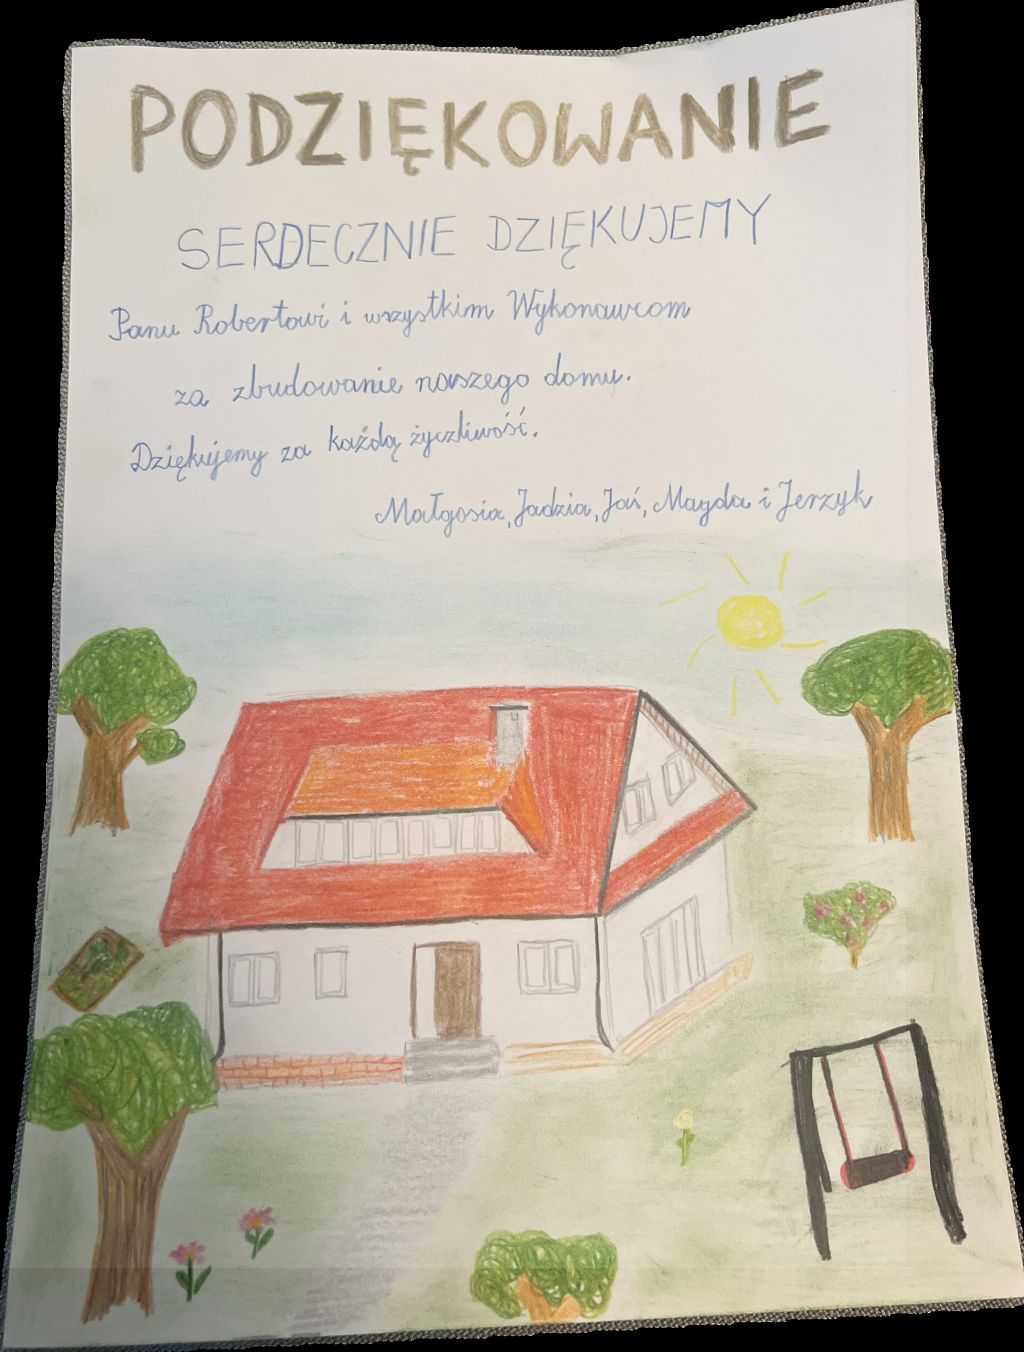 PODZIĘKOWANIE
SERDECZNIE DZIĘKUJEMY
Panu Robertowi i wszystkim Wykonawcom
za zbudowanie naszego domu.
Dziękujemy za każdą życzliwość.
Małgosia, Jadzia, Jaś, Magda i Jerzyk